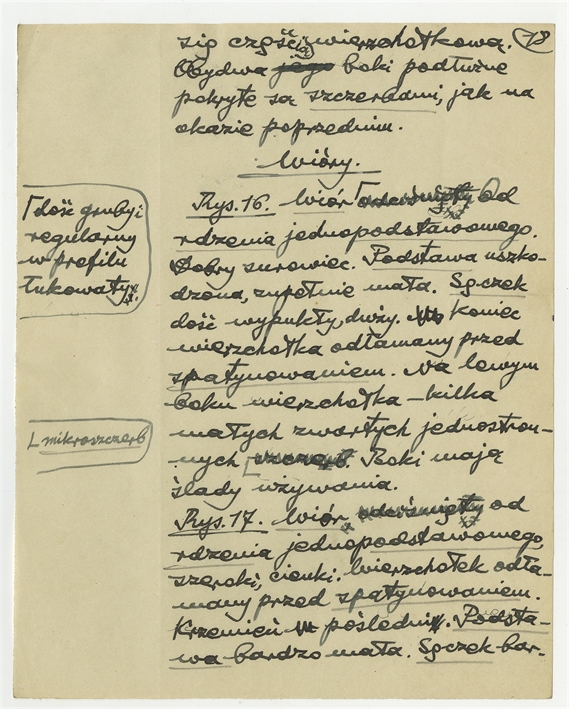 18
się część wierzchołkową.
Obydwa jego boki podłużne
pokryte są szczerbami, jak na
okazie poprzednim.
Wióry.
Rys. 16. Wiór odciśnięty od
rdzenia jednopodstawowego.
Dobry surowiec. Podstawa uszko-
dzona, zupełnie mała. Sęczek
dość wypukły, duży. koniec
wierzchołka odłamany przed
spatynowaniem. Na lewym
boku wierzchołka – kilka
małych zwartych jednostron-
nych szczerb. Boki mają
ślady używania.
Rys. 17. Wiór odciśnięty od
rdzenia jednopodstawowego,
szeroki, cienki. Wierzchołek odła-
many przed spatynowaniem.
Krzemień pośledni. Podsta-
wa bardzo mała. Sęczek bar-
dość gruby i
regularny
w profilu
łukowaty
mikroszczerb